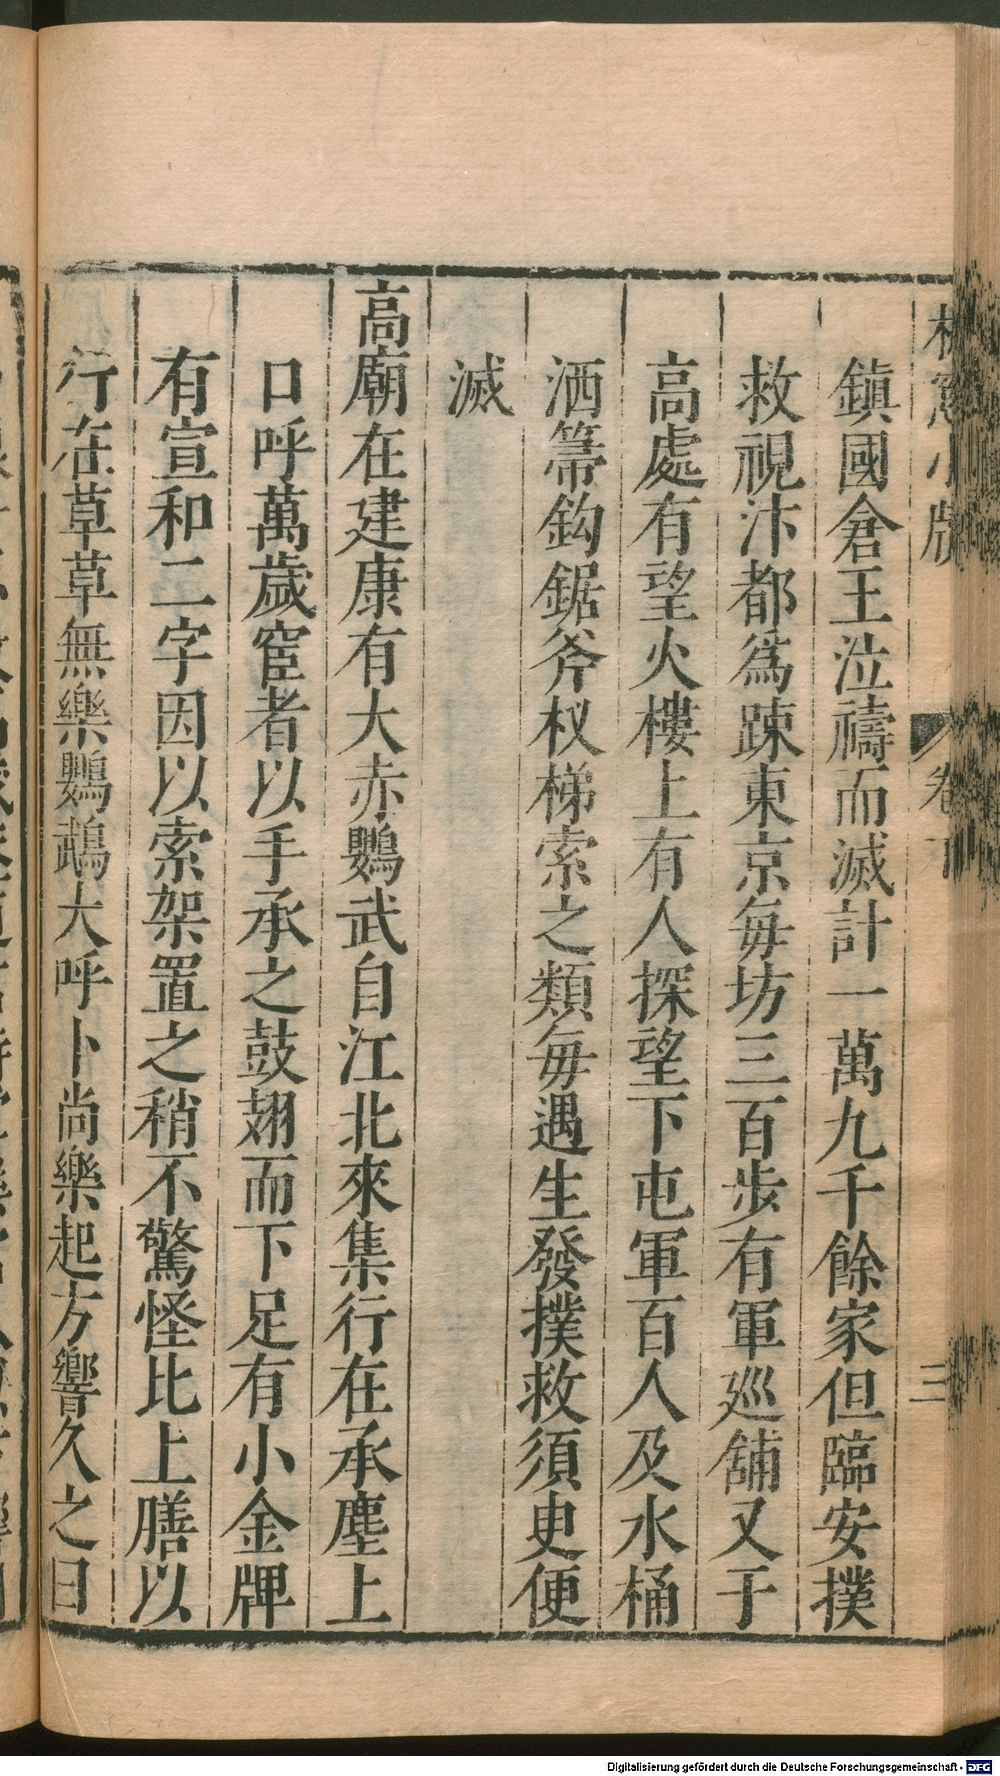 鎮國倉王泣禱而滅計一萬九千餘家但臨安撲
救視汴都爲踈東京每坊三百步有軍廵舖又于
高處有望火樓上有人探望下屯軍百人及水桶
洒箒鈎鋸斧杈梯索之類每遇生發撲救須臾便
滅
高廟在建康有大赤鸚武自江北來集行在承塵上
口呼萬歲宦者以手承之鼓翅而下足有小金牌
有宣和二字因以索架置之稍不驚怪比上膳以
行在草草無樂鸚鵡大呼卜尚樂起方響久之曰
卷下
三
Digitalisierung gefördert durch die Deutsche Forschungsgemeinschaft - DFG